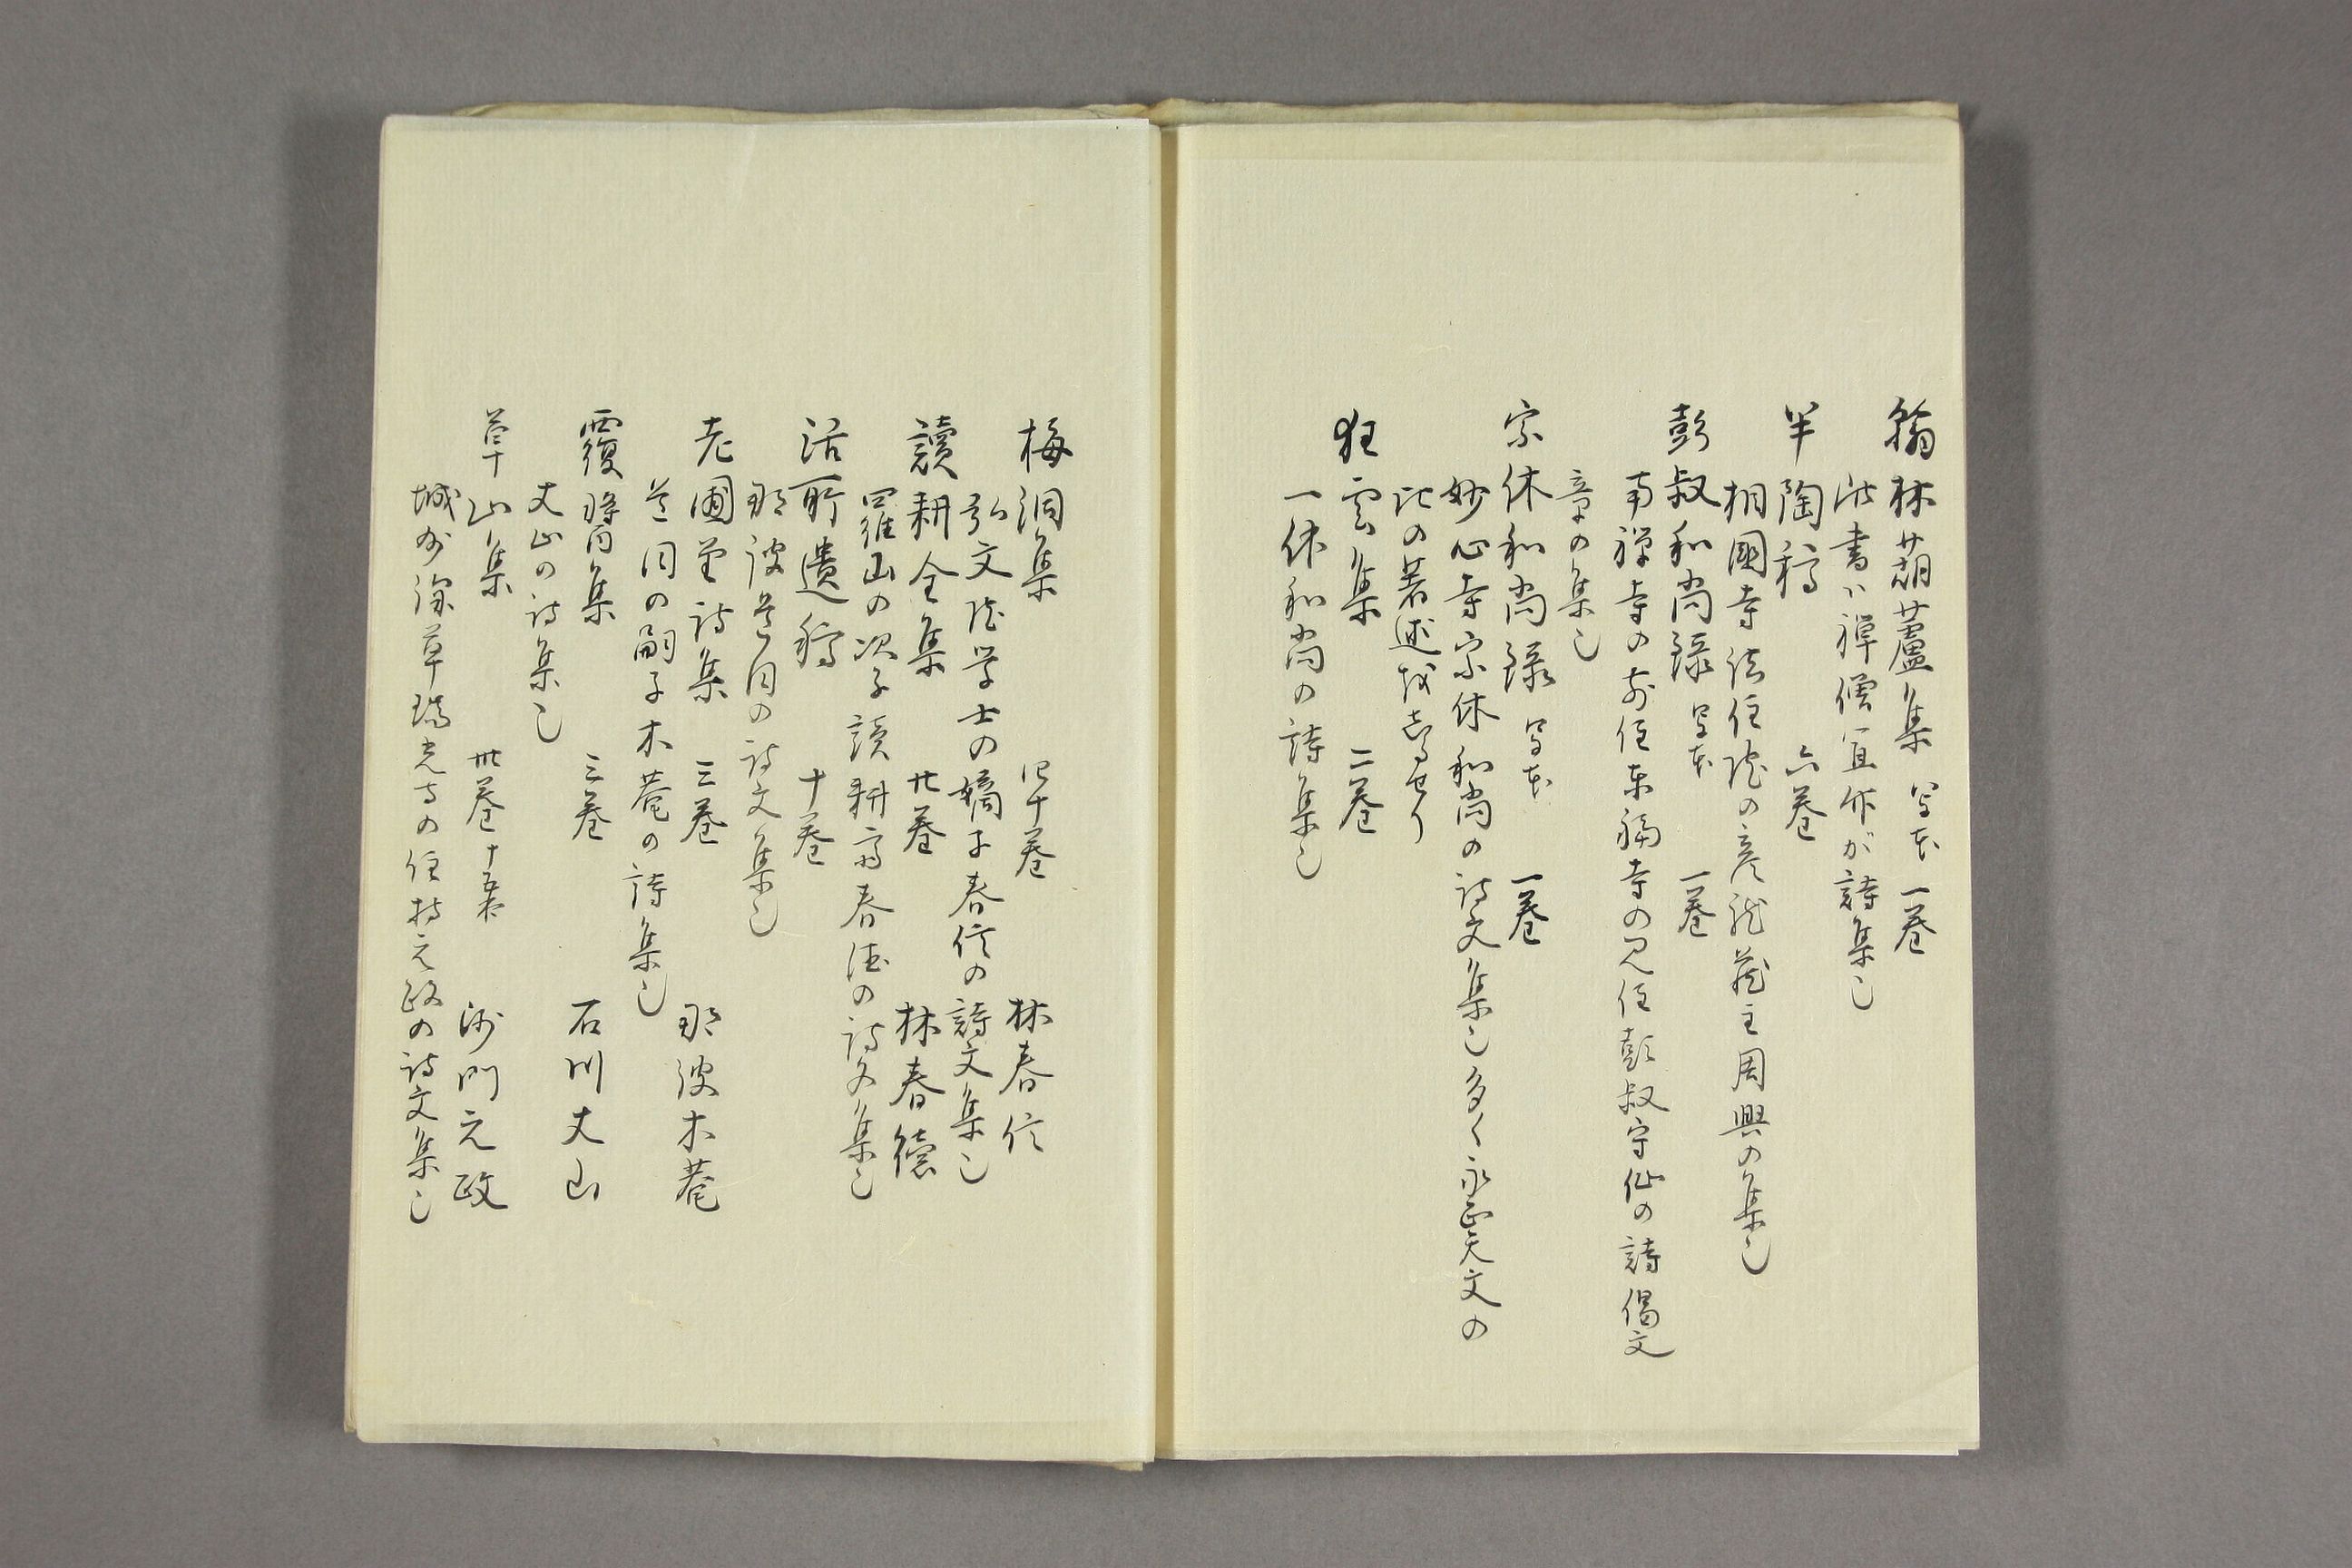 翰林葫蘆集 写本 一巻
此書ハ禅僧宜竹が詩集也
半陶稿 六巻
相國寺法住院の彦龍蔵主周興の集也
彭叔和尚録 写本 一巻
南禅寺の前住東福寺の見住彭叔守仙の詩偈文
章の集也
宗休和尚録 写本 一巻
妙心寺宗休和尚の詩文集也多く永正天文の
比の著述を志るせり
狂雲集 二巻
一休和尚の詩集也
梅洞集 四十巻 林春信
弘文院学士の嫡子春信の詩文集也
讀耕全集 廿巻 林春德
羅山の次子讀耕斎春徳の詩文集也
活所遺稿 十巻
那波道円の詩文集也
老圃堂詩集 三巻 那波木菴
道円の嗣子木菴の詩集也
覆醤集 三巻 石川丈山
丈山の詩集也
草山集 卅巻 十五冊 沙門元政
城州深草瑞光寺の住持元政の詩文集也